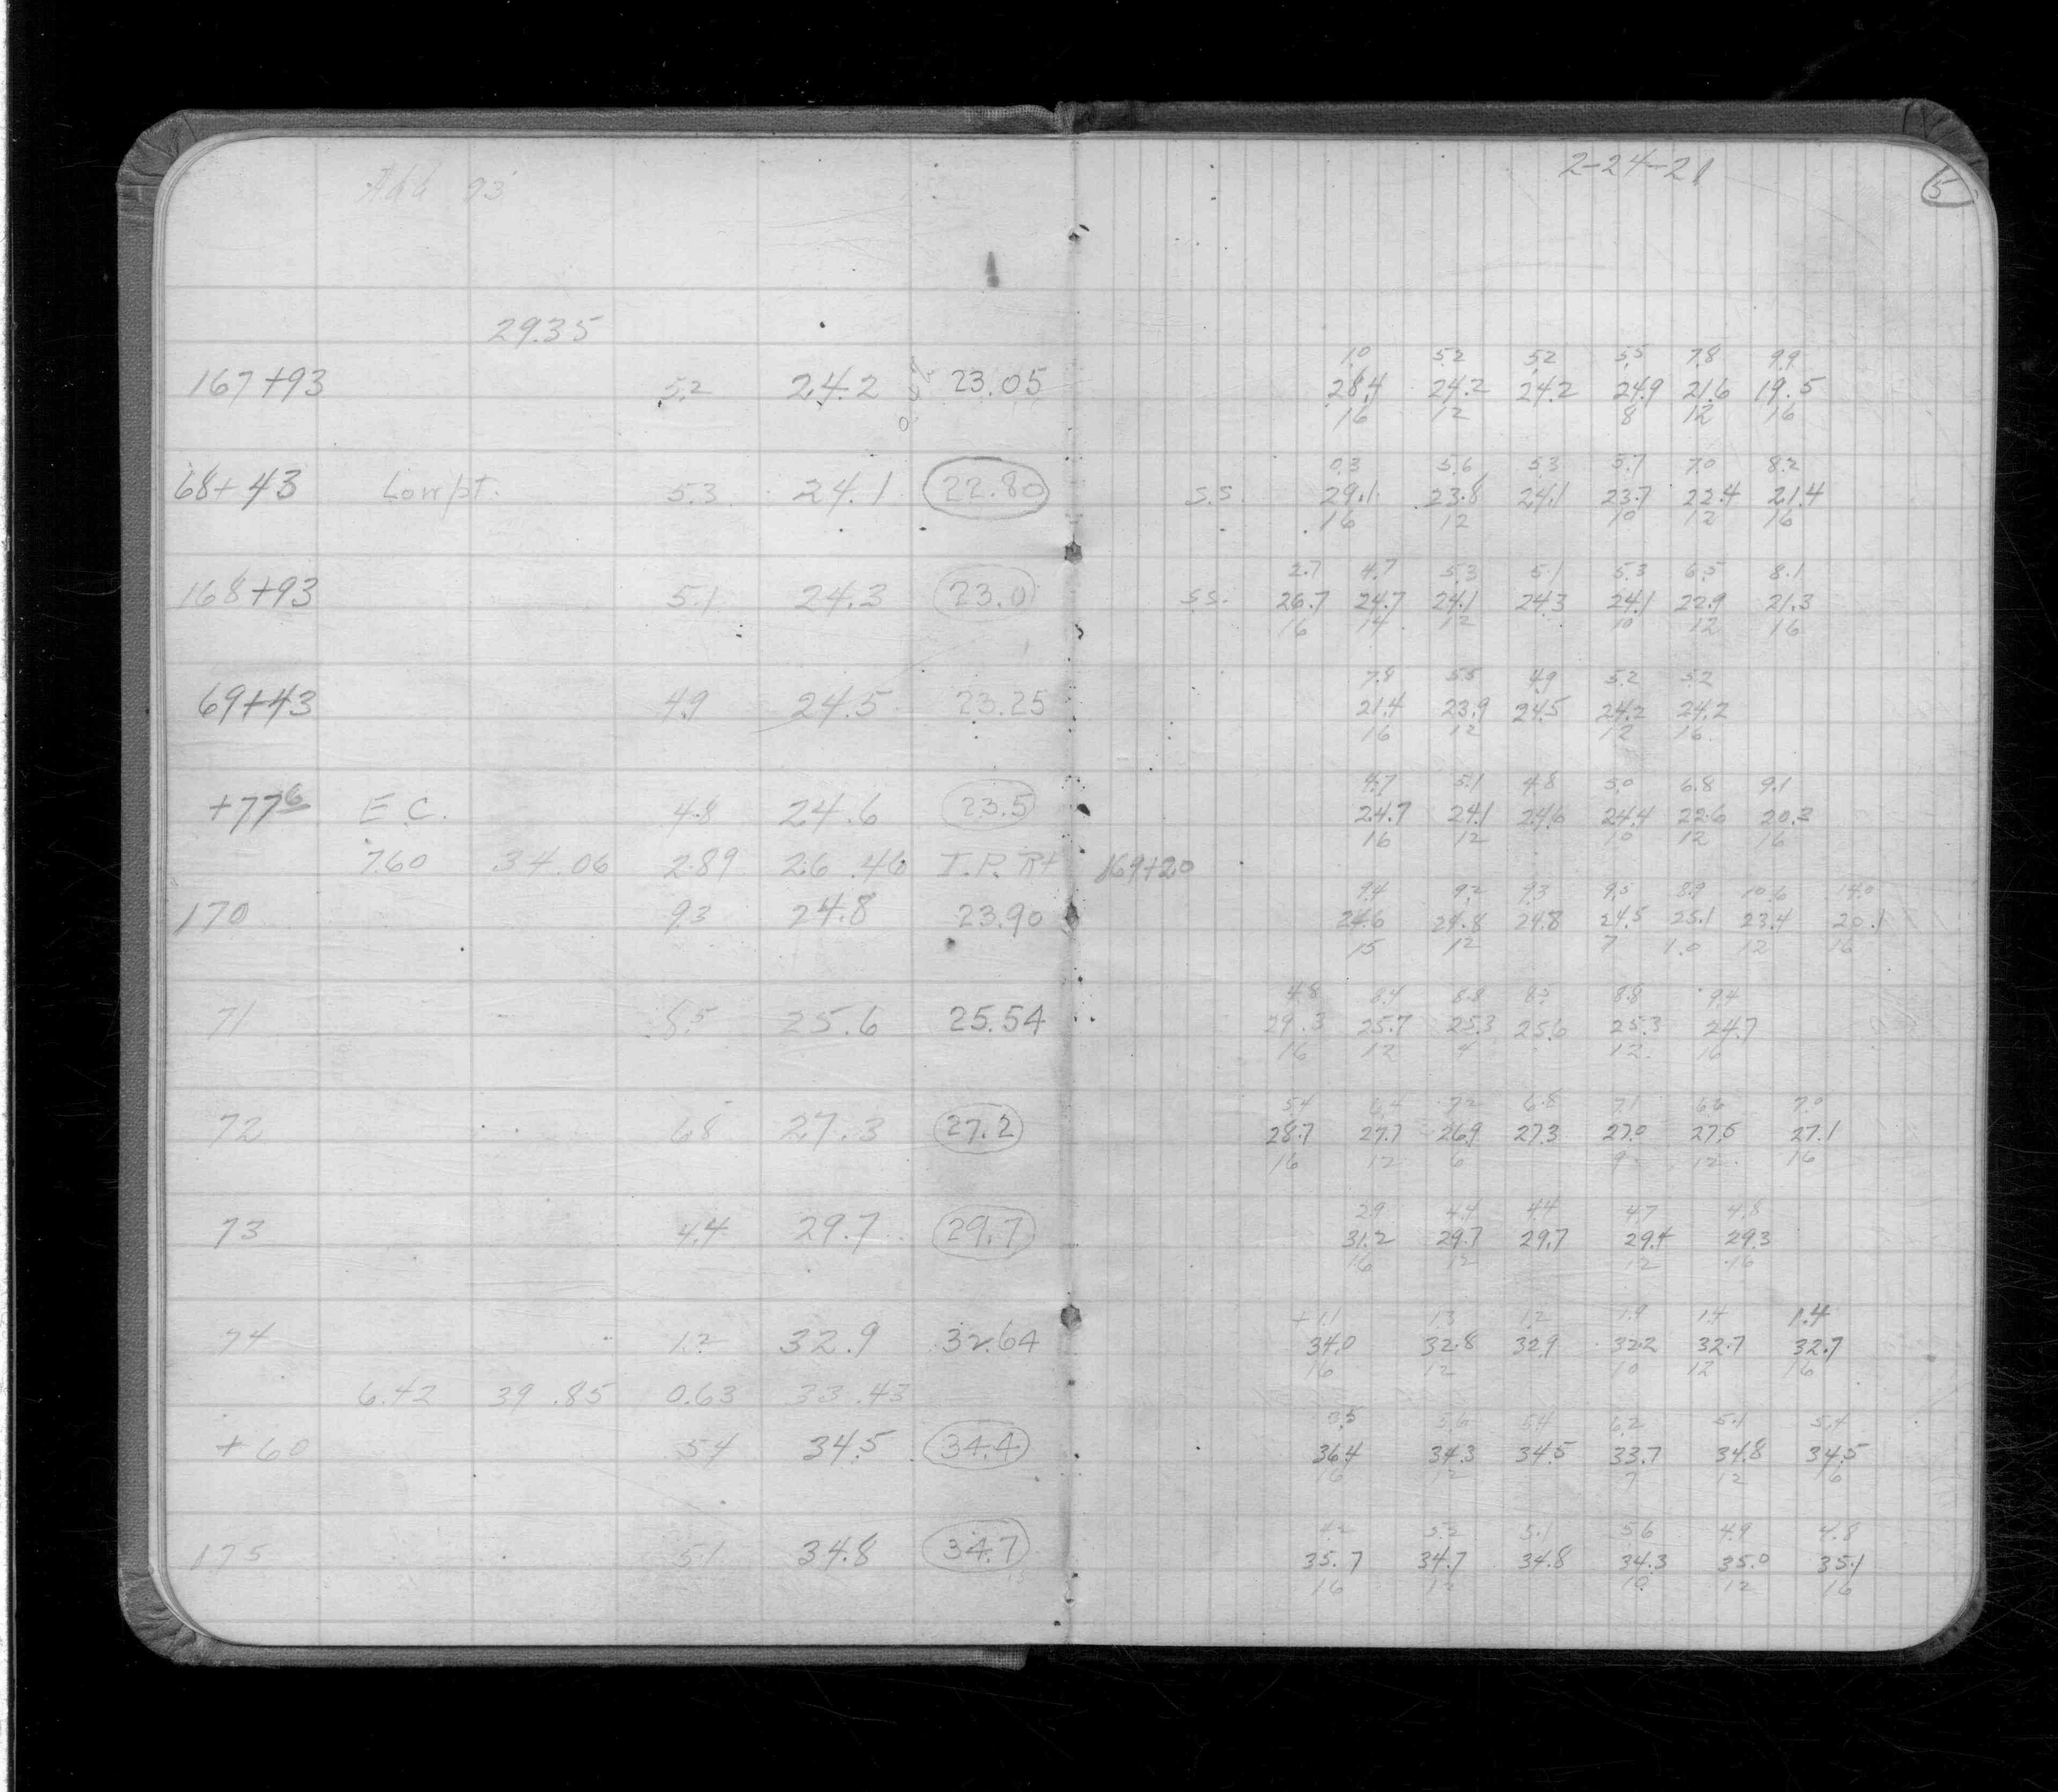 Add 93'
2-24-21
5
29.35
1.0 5.2 5.2 5.5 7.8 9.9
167+93 5.2 24.2 23.05 28.4 24.2 24.2 24.9 21.6 19.5
16 12 8 12 16
0.3 5.6 5.3 5.7 7.0 8.2
68+43 Low pt. 5.3 24.1 22.80 S.S. 29.1 23.8 24.1 23.7 22.4 21.4
16 12 10 12 16
2.7 4.7 5.3 5.1 5.3 6.5 8.1
168+93 5.1 24.3 23.0 S.S. 26.7 24.7 24.1 24.3 24.1 22.9 21.3
16 14 12 10 12 16
7.8 5.5 4.9 5.2 5.2
69+43 4.9 24.5 23.25 21.4 23.9 24.5 24.2 24.2
16 12 12 16
4.7 5.1 4.8 5.0 6.8 9.1
+77 6 E.C. 4.8 24.6 23.5 24.7 24.1 24.6 24.4 22.6 20.3
16 12 10 12 16
7.60 34.06 2.89 26.46 T.P. Rt 169+20
9.4 9.2 9.3 9.5 8.9 10.6 14.0
170 9.3 24.8 23.90 24.6 24.8 24.8 24.5 25.1 23.4 20.1
15 12 7 10 12 16
4.8 8.4 8.8 8.5 8.8 9.4
71 8.5 25.6 25.54 29.3 25.7 25.3 25.6 25.3 24.7
16 12 4 12 16
5.4 6.4 7.2 6.8 7.1 6.6 7.0
72 6.8 27.3 27.2 28.7 27.7 26.9 27.3 27.0 27.5 27.1
16 12 6 9 12 16
2.9 4.4 4.4 4.7 4.8
73 4.4 29.7 29.7 31.2 29.7 29.7 29.4 29.3
16 12 12 16
+1.1 1.3 1.2 1.9 1.4 1.4
74 1.2 32.9 32.64 34.0 32.8 32.9 32.2 32.7 32.7
16 12 10 12 16
6.42 39.85 0.63 33.43
3.5 5.6 5.4 6.2 5.1 5.4
+60 5.4 34.5 34.4 36.4 34.3 34.5 33.7 34.8 34.5
16 12 7 12 16
4.2 5.2 5.1 5.6 4.9 4.8
175 5.1 34.8 34.7 35.7 34.7 34.8 34.3 35.0 35.1
16 12 10 12 16